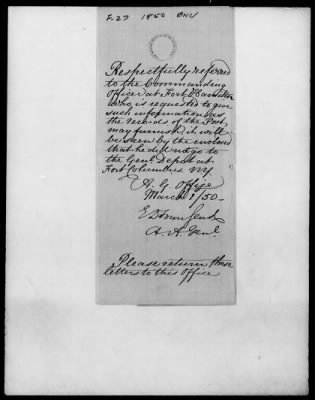 F.27 1850 ENV
Respectfully referred
to the Commanding
Officer at Fort Hamilton
who is requested to give
such information as
the records of the Post
may furnish. it will
be seen by the enclosed
that he did not go to
the Genl Depot at
Fort Columbus N.Y.
A. G. Office
March 1/50
E D Townsend
A. A. Genl.
Please return these
letters to this Office